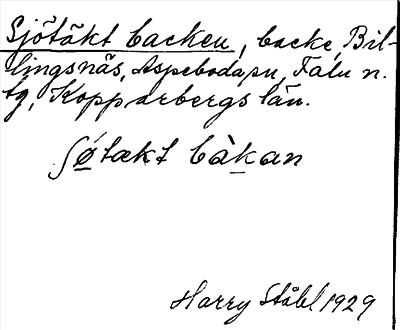 Sjötäkt backen, backe, Bil-
lingsnäs, Aspeboda sn, Falu n.
tg, Kopparbergs län.
ʃǿtækt bàkan
Harry Ståhl 1929